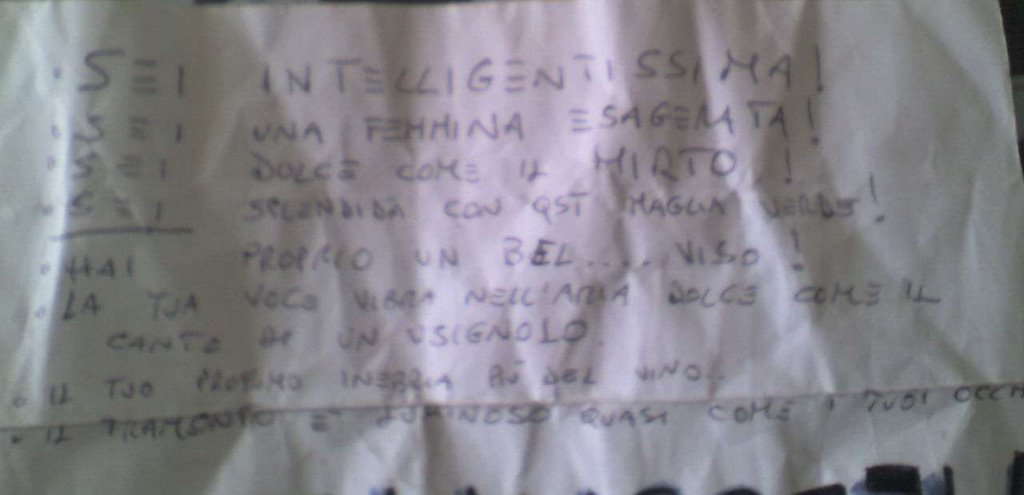 • SEI INTELLIGENTISSIMA!
• SEI UNA FEMMINA ESAGERATA!
• SEI DOLCE COME IL MIRTO!
• SEI SPLENDIDA CON QST MAGLIA VERDE!
• HAI PROPRIO UN BEL..... VISO!
• LA TUA VOCE VIBRA NELL'ARIA DOLCE COME IL
CANTO DI UN USIGNOLO.
• IL TUO PROFUMO INEBRIA PIÙ DEL VINO..
• IL TRAMONTO E' LUMINOSO QUASI COME I TUOI OCCHI